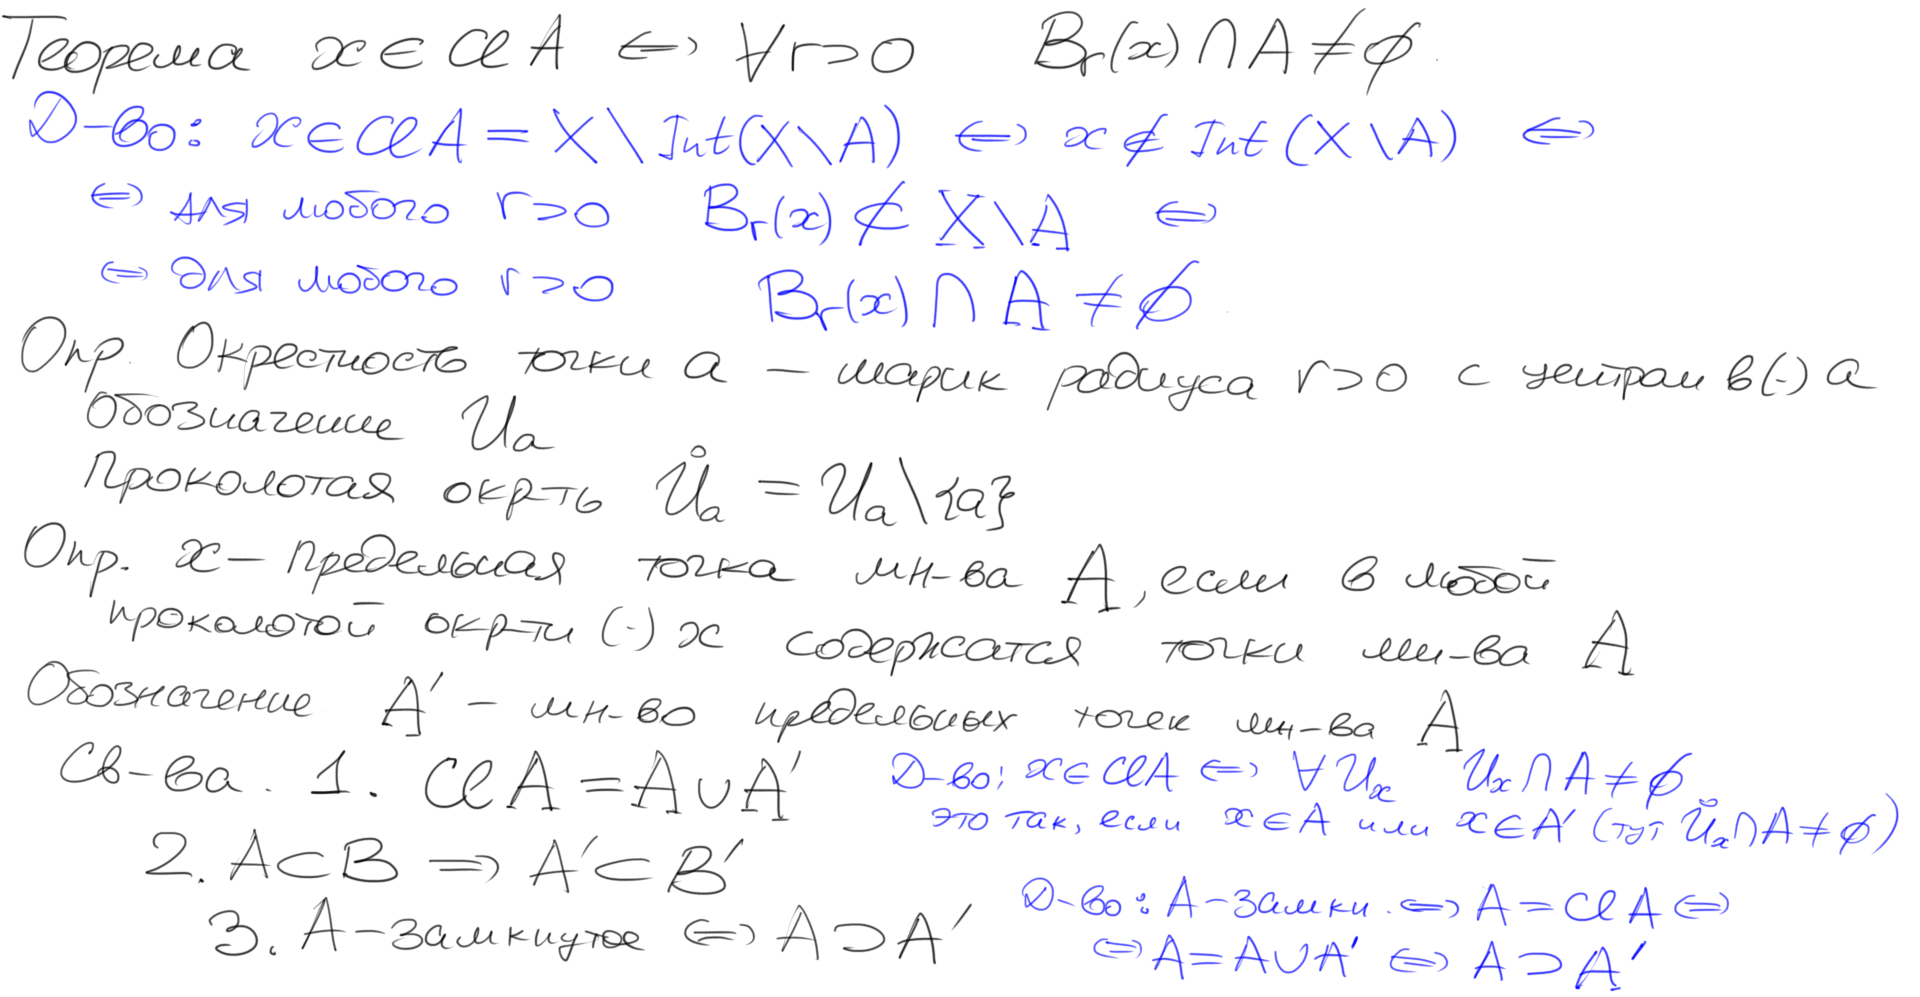 Теорема x ∈ Cl A ⇔ ∀r>0 Bᵣ(x) ∩ A ≠ ∅.
Д-во: x ∈ Cl A = X \ Int(X\A) ⇔ x ∉ Int (X\A) ⇔
⇔ для любого r>0 Bᵣ(x) ⊄ X\A ⇔
⇔ для любого r>0 Bᵣ(x) ∩ A ≠ ∅
Опр. Окрестность точки a – шарик радиуса r>0 с центром в (·) a
Обозначение Uₐ
Проколотая окр-ть Ůₐ = Uₐ \ {a}
Опр. x – предельная точка мн-ва A, если в любой
проколотой окр-ти (·) x содержатся точки мн-ва A
Обозначение A′ – мн-во предельных точек мн-ва A
Св-ва. 1. Cl A = A ∪ A′ Д-во: x ∈ Cl A ⇔ ∀Uₓ Uₓ ∩ A ≠ ∅
это так, если x ∈ A или x ∈ A′ (тут Ůₓ ∩ A ≠ ∅)
2. A ⊂ B ⇒ A′ ⊂ B′
3. A – замкнутое ⇔ A ⊃ A′ Д-во: A – замкн. ⇔ A = Cl A ⇔
⇔ A = A ∪ A′ ⇔ A ⊃ A′